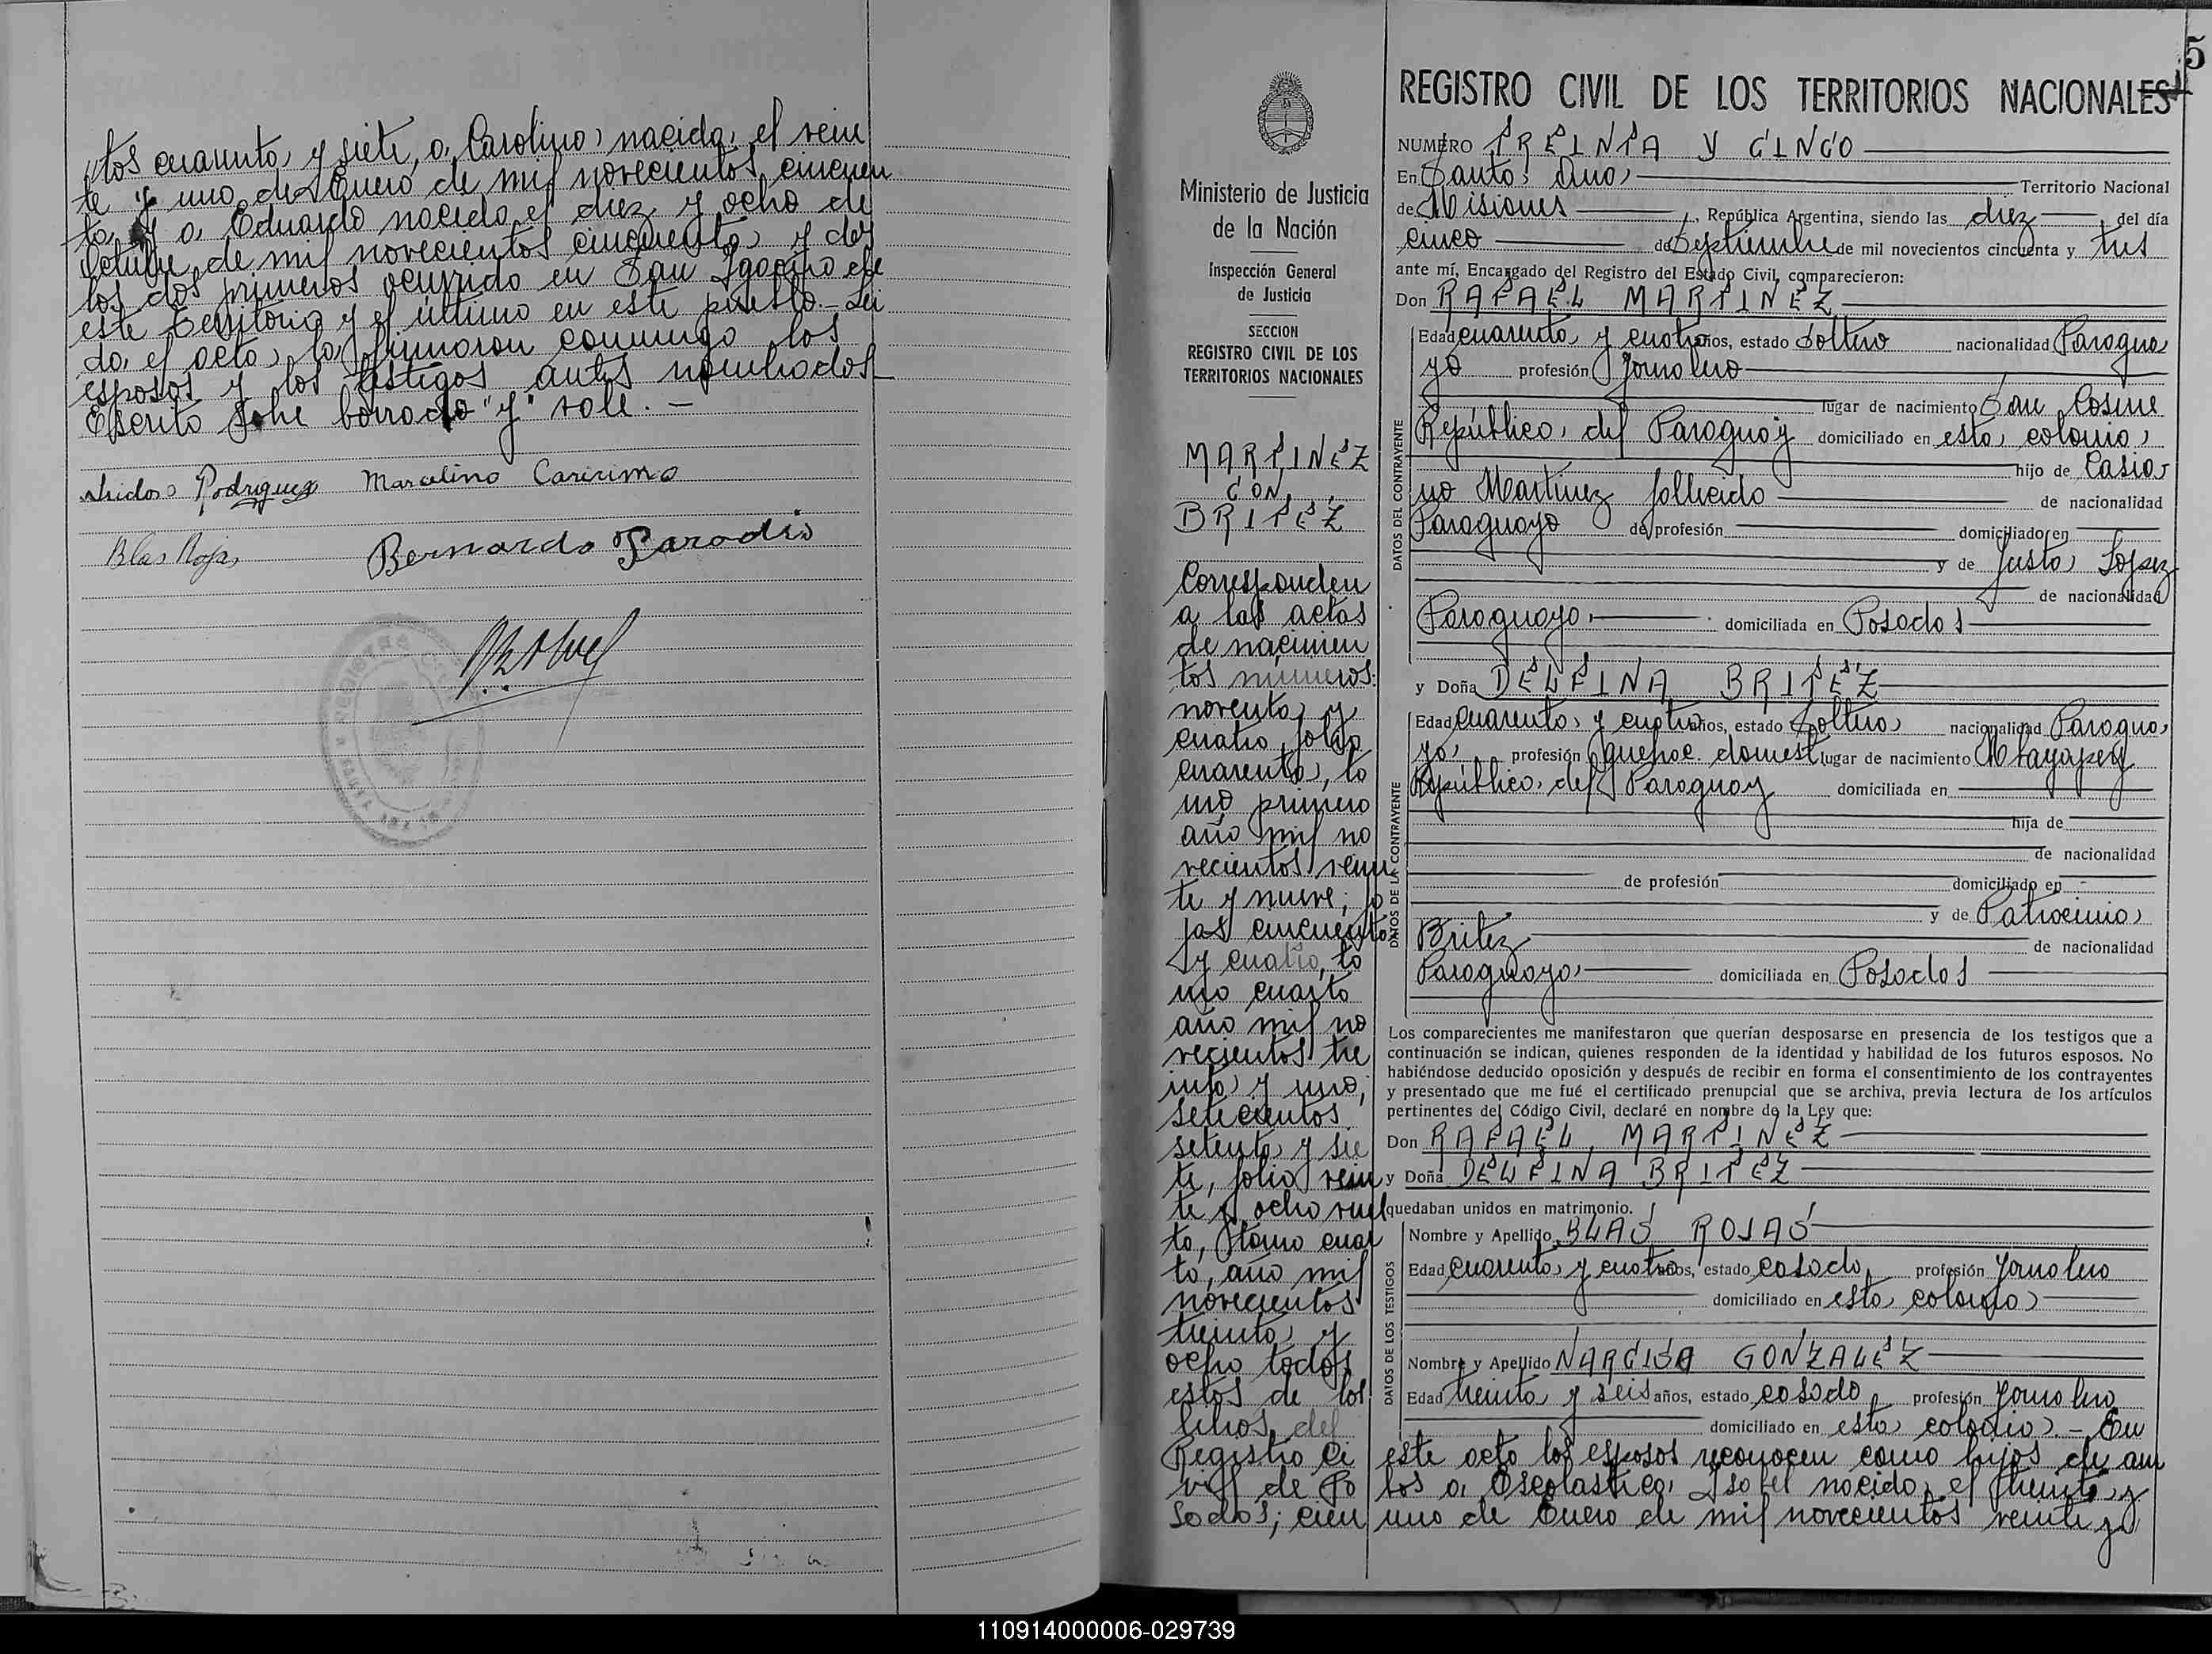 tos cuarenta y siete, a Carolina nacida el vein
te y uno de Enero de mil novecientos cincuen
ta y a Eduardo nacido el diez y ocho de
Octubre de mil novecientos cincuenta y dos
los dos primeros ocurrido en San Ignacio de
este territorio y el último en este pueblo.- Leí
da el acta, la firmaron conmigo los
esposos y los testigos antes nombrados
Escrito sobre borrado "y" vale.-
Isidoro Rodriguez Marcelino
Blas Rojas Bernardo Parodis
5
REGISTRO CIVIL DE LOS TERRITORIOS NACIONALES
Ministerio de Justicia
de la Nación
Inspección General
de Justicia
SECCION
REGISTRO CIVIL DE LOS
TERRITORIOS NACIONALES
MARTINEZ
CON
BRITEZ
Corresponden
a las actas
de nacimien
tos números:
noventa y
cuatro folio
cuarenta, to
mo primero
año mil no
vecientos vein
te y nueve; fo
jas cincuenta
y cuatro, to
mo cuarto
año mil no
vecientos tre
inta y uno;
setecientos
setenta y sie
te, folio vein
te y ocho vuel
to, tomo cuar
to, año mil
novecientos
treinta y
ocho todos
estos de los
libros del
Registro Ci
vil de Po
sadas; cien
NUMERO TREINTA Y CINCO
En Santa Ana Territorio Nacional
de Misiones, República Argentina, siendo las diez del día
cinco de Septiembre de mil novecientos cincuenta y tres
ante mí, Encargado del Registro del Estado Civil, comparecieron:
Don RAFAEL MARTINEZ
DATOS DEL CONTRAYENTE
Edad cuarenta y cuatro años, estado soltero nacionalidad Paragua
yo profesión Jornalero
lugar de nacimiento San Cosme
República del Paraguay domiciliado en esta colonia
hijo de Casia
no Martinez fallecido de nacionalidad
Paraguayo de profesión domiciliado en
y de Justa Lopez
de nacionalidad
Paraguaya domiciliada en Posadas
y Doña DELFINA BRITEZ
DATOS DE LA CONTRAYENTE
Edad cuarenta y cuatro años, estado soltera nacionalidad Paragua
ya profesión quehac. domest lugar de nacimiento
República del Paraguay domiciliada en
hija de
de nacionalidad
de profesión domiciliado en
y de Patrocinia
Britez de nacionalidad
Paraguaya domiciliada en Posadas
Los comparecientes me manifestaron que querían desposarse en presencia de los testigos que a
continuación se indican, quienes responden de la identidad y habilidad de los futuros esposos. No
habiéndose deducido oposición y después de recibir en forma el consentimiento de los contrayentes
y presentado que me fué el certificado prenupcial que se archiva, previa lectura de los artículos
pertinentes del Código Civil, declaré en nombre de la Ley que:
Don RAFAEL MARTINEZ
y Doña DELFINA BRITEZ
quedaban unidos en matrimonio.
DATOS DE LOS TESTIGOS
Nombre y Apellido BLAS ROJAS
Edad cuarenta y cuatro años, estado casado profesión Jornalero
domiciliado en esta colonia
Nombre y Apellido NARCISA GONZALEZ
Edad treinta y seis años, estado casado profesión Jornalero
domiciliado en esta colonia.- En
este acto los esposos reconocen como hijos de am
bos a Escolastica Isabel nacida el treinta y
uno de Enero de mil novecientos veinte y
110914000006-029739